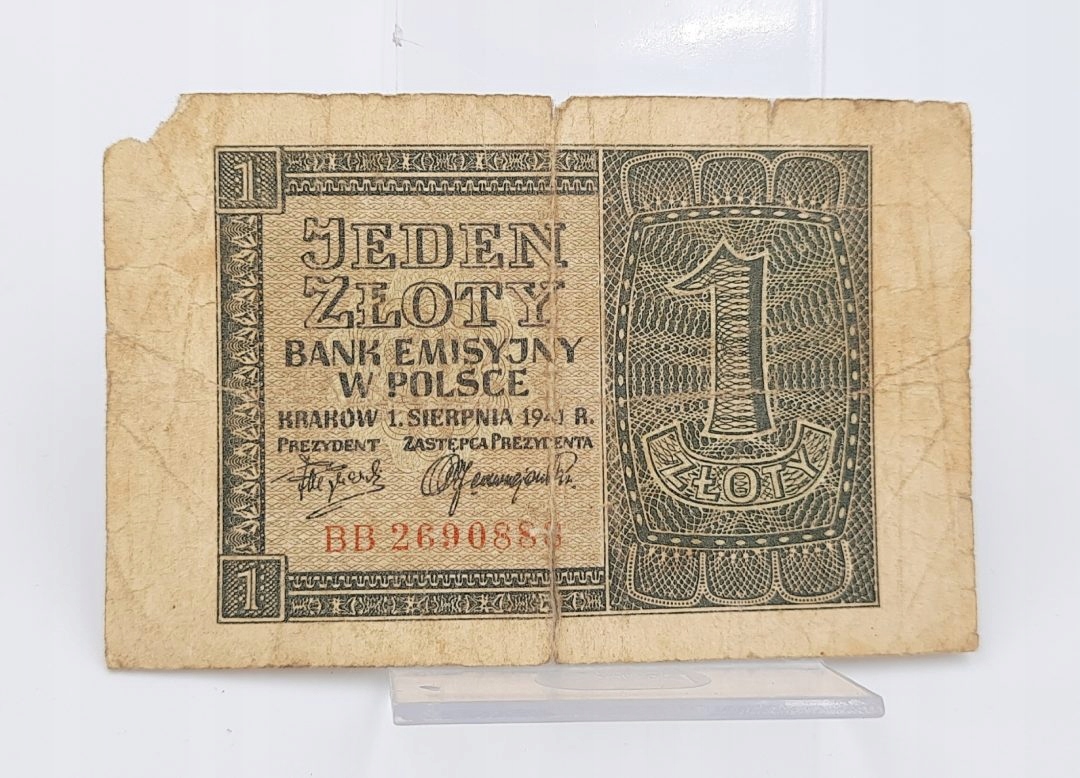 1
JEDEN
ZŁOTY
BANK EMISYJNY
W POLSCE
KRAKÓW 1. SIERPNIA 1941 R.
PREZYDENT ZASTĘPCA PREZYDENTA
BB
1
1
ZŁOTY